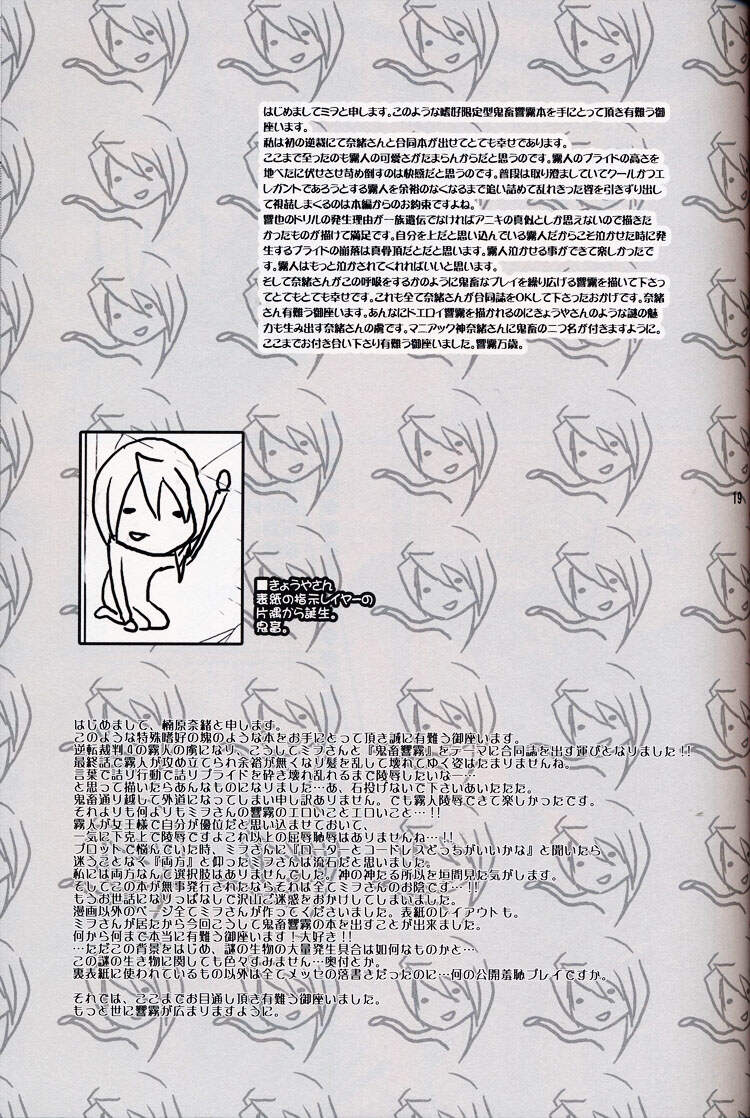 はじめましてミヲと申します。このような嗜好限定型鬼畜響霧本を手にとって頂き有難う御
座います。
私は初の逆裁にて奈緒さんと合同本が出せてとても幸せであります。
ここまで至ったのも霧人の可愛さがたまらんからだと思うのです。霧人のプライドの高さを
地べたに伏せさせ苛め倒すのは快感だと思うのです。普段は取り澄ましていてクールかつエ
レガントであろうとする霧人を余裕のなくなるまで追い詰めて乱れきった姿を引きずり出し
て視詰しまくるのは本編からのお約束ですよね。
響也のドリルの発生理由が一族遺伝でなければアニキの真似としか思えないので描きた
かったものが描けて満足です。自分を上だと思い込んでいる霧人だからこそ泣かせた時に発
生するプライドの崩落は真骨頂だとだと思います。霧人泣かせる事ができて楽しかったで
す。霧人はもっと泣かされてくれればいいと思います。
そして奈緒さんがこの呼吸をするかのように鬼畜なプレイを繰り広げる響霧を描いて下さっ
てとてもとても幸せです。これも全て奈緒さんが合同誌をOKして下さったおかげです。奈緒
さん有難う御座います。あんなにドエロイ響霧を描かれるのにきょうやさんのような謎の魅
力も生み出す奈緒さんの虜です。マニアック神奈緒さんに鬼畜の二つ名が付きますように。
ここまでお付き合い下さり有難う御座いました。響霧万歳。
19
■きょうやさん
表紙の指示レイヤーの
片隅から誕生。
鬼畜。
はじめまして、楠原奈緒と申します。
このような特殊嗜好の塊のような本をお手にとって頂き誠に有難う御座います。
逆転裁判4の霧人の虜になり、こうしてミヲさんと『鬼畜響霧』をテーマに合同誌を出す運びとなりました!!
最終話で霧人が攻め立てられ余裕が無くなり髪を乱して壊れてゆく姿はたまりませんね。
言葉で詰り行動で詰りプライドを砕き壊れ乱れるまで陵辱したいな−…
と思って描いたらあんなものになりました…あ、石投げないで下さいあいたたた。
鬼畜通り越して外道になってしまい申し訳ありません。でも霧人陵辱できて楽しかったです。
それよりも何よりもミヲさんの響霧のエロいことエロいこと…!!
霧人が女王様で自分が優位だと思い込ませておいて、
一気に下克上で陵辱ですよこれ以上の屈辱恥辱はありませんね…!!
プロットで悩んでいた時、ミヲさんに『ローターとコードレスどっちがいいかな』と聞いたら
迷うことなく『両方』と仰ったミヲさんは流石だと思いました。
私には両方なんて選択肢はありませんでした。神の神たる所以を垣間見た気がします。
そしてこの本が無事発行されたならそれは全てミヲさんのお陰です…!!
もうお世話になりっぱなしで沢山ご迷惑をおかけしてしまいました。
漫画以外のページ全てミヲさんが作ってくださいました。表紙のレイアウトも。
ミヲさんが居たから今回こうして鬼畜響霧の本を出すことが出来ました。
何から何まで本当に有難う御座います!大好き!!
…ただこの背景をはじめ、謎の生物の大量発生具合は如何なものかと…
この謎の生き物に関しても色々すみません…奥付とか。
裏表紙に使われているもの以外は全てメッセの落書きだったのに…何の公開羞恥プレイですか。
それでは、ここまでお目通し頂き有難う御座いました。
もっと世に響霧が広まりますように。